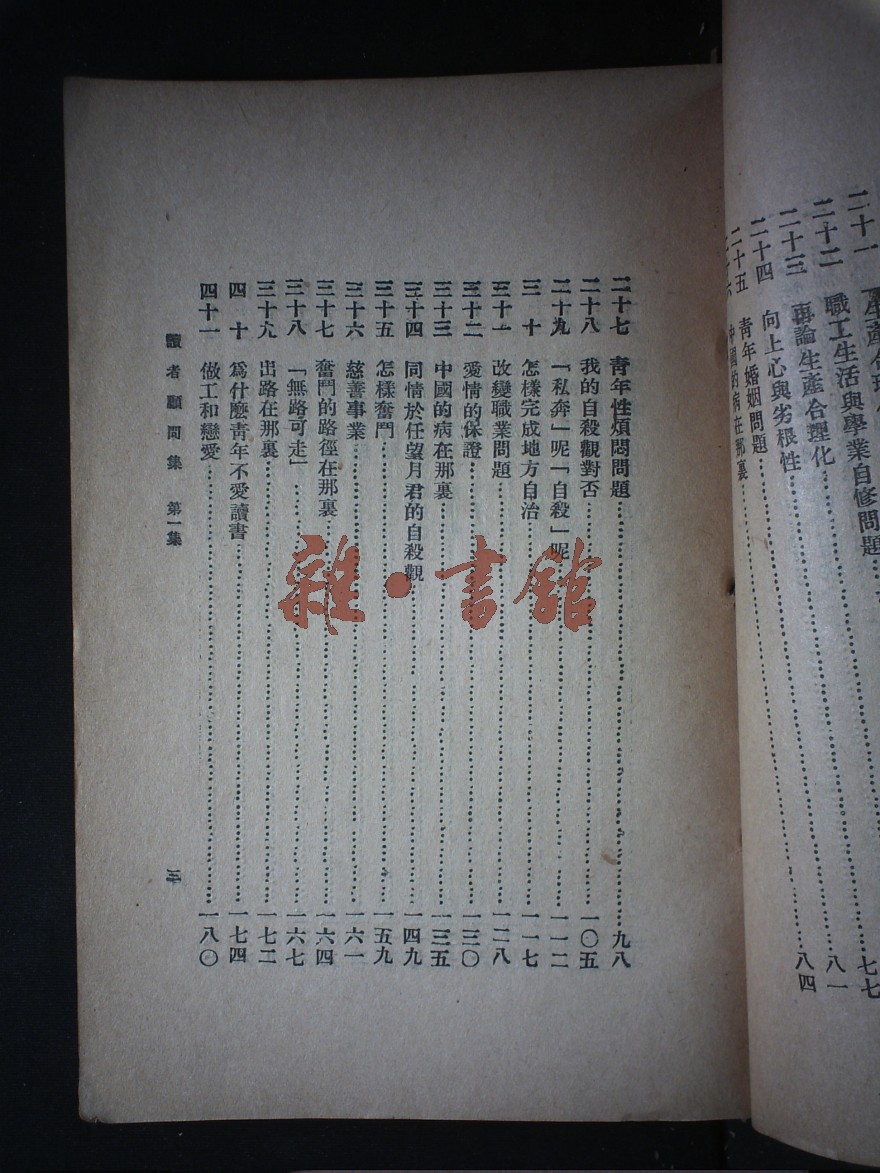 二十一
二十二 職工生活與學業自修問題 七七
二十三 再論生產合理化 八一
二十四 向上心與劣根性 八四
二十五 青年婚姻問題
中國的病在那裏
二十七 青年性煩悶問題 九八
二十八 我的自殺觀對否 一〇五
二十九 「私奔」呢「自殺」呢 一一二
三十 怎樣完成地方自治 一一七
三十一 改變職業問題 一二八
三十二 愛情的保證 一三〇
三十三 中國的病在那裏 一三五
三十四 同情於任望月君的自殺觀 一四九
三十五 怎樣奮鬥 一五九
三十六 慈善事業 一六一
三十七 奮鬥的路徑在那裏 一六四
三十八 「無路可走」 一六七
三十九 出路在那裏 一七二
四十 爲什麼靑年不愛讀書 一七四
四十一 做工和戀愛 一八〇
讀者顧問集 第一集 三
雜·書館